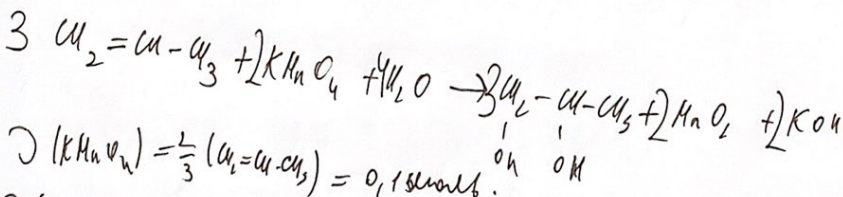 3 CH₂=CH-CH₃ + 2KMnO₄ + 4H₂O → 3CH₂-CH-CH₃ + 2MnO₂ + 2KOH
OH OH
(KMnO₄) = 2/3 (CH₂=CH-CH₃) = 0,1